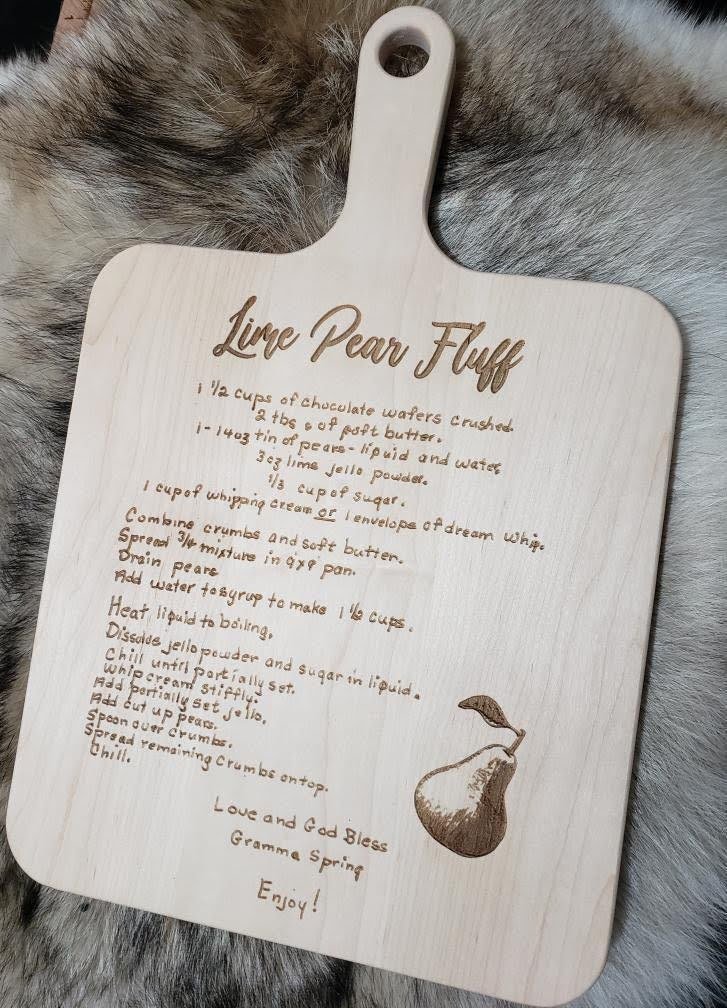 Lime Pear Fluff
1 1/2 cups of chocolate wafers crushed.
2 tbs. of soft butter.
1- 14oz tin of pears- liquid and water,
3oz lime jello powder.
1/3 cup of sugar.
1 cup of whipping cream or 1 envelope of dream whip.
Combine crumbs and soft butter.
Spread 3/4 mixture in 9x9 pan.
Drain pears
Add water to syrup to make 1 1/2 cups.
Heat liquid to boiling.
Dissolve jello powder and sugar in liquid.
Chill until partially set.
Whip cream stiffly.
Add partially set jello.
Add cut up pears.
Spoon over crumbs.
Spread remaining crumbs on top.
Chill.
Love and God Bless
Gramma Spring
Enjoy!